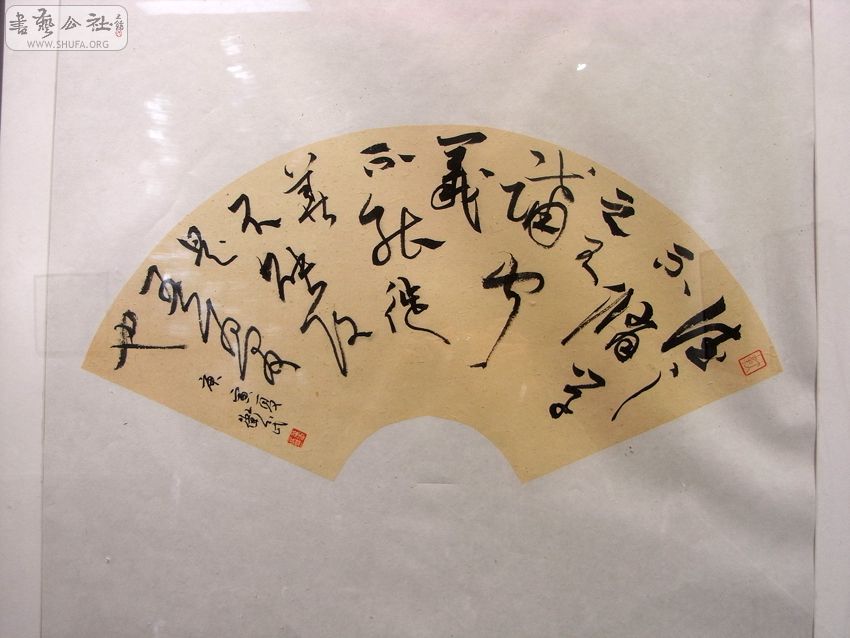 書藝公社
WWW.SHUFA.ORG
德之
不脩學
之不
講聞
義
不能徙
善
不能改
是
吾憂
也
庚寅夏